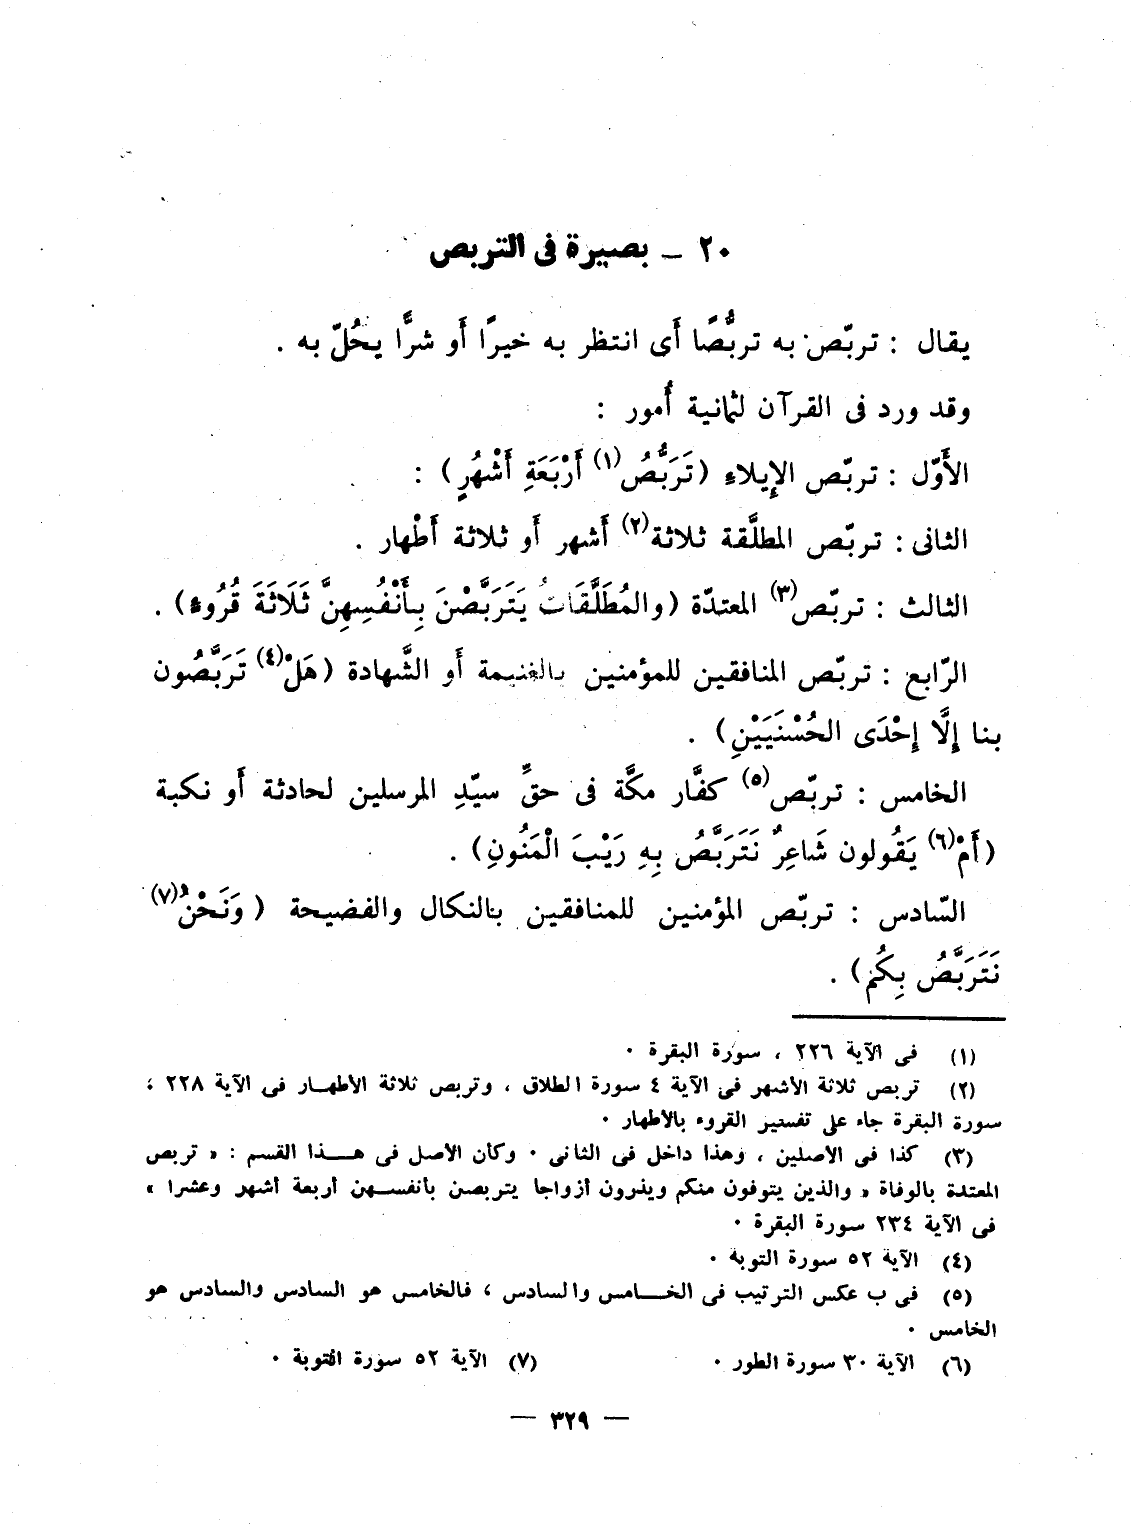 ٢٠ ـ بصيرة فى التربص
يقال : تربّص به تربُّصًا أَى انتظر به خيرًا أَو شرًّا يحُلّ به .
وقد ورد فى القرآن لثمانية أُمور :
الأَوّل : تربّص الإِيلاءِ (تَرَبُّصُ(١) أَرْبَعَةِ أَشْهُرٍ) :
الثانى : تربّص المطلَّقة ثلاثة(٢) أَشهر أَو ثلاثة أَطْهار .
الثالث : تربّص(٣) المعتدّة (والمُطَلَّقَاتُ يَتَرَبَّصْنَ بِأَنْفُسِهِنَّ ثَلَاثَةَ قُرُوءٍ) .
الرّابع : تربّص المنافقين للمؤمنين بالغنيمة أَو الشَّهادة (هَلْ(٤) تَرَبَّصُون
بنا إِلَّا إِحْدَى الحُسْنَيَيْنِ) .
الخامس : تربّص(٥) كفَّار مكَّة فى حقِّ سيّدِ المرسلين لحادثة أَو نكبة
(أَمْ(٦) يَقُولون شَاعِرٌ نَتَرَبَّصُ بِهِ رَيْبَ الْمَنُونِ) .
السّادس : تربّص المؤمنين للمنافقين بالنكال والفضيحة (وَنَحْنُ(٧)
نَتَرَبَّصُ بِكُم) .
(١) فى الآية ٢٢٦ ، سورة البقرة ٠
(٢) تربص ثلاثة الأشهر فى الآية ٤ سورة الطلاق ، وتربص ثلاثة الأطهـار فى الآية ٢٢٨ ،
سورة البقرة جاء على تفسير القروء بالأطهار ٠
(٣) كذا فى الأصلين ، وهذا داخل فى الثانى ٠ وكأن الأصل فى هـــذا القسم : « تربص
المعتدة بالوفاة « والذين يتوفون منكم ويذرون أزواجا يتربصن بأنفســهن أربعة أشهر وعشرا »
فى الآية ٢٣٤ سورة البقرة ٠
(٤) الآية ٥٢ سورة التوبة ٠
(٥) فى ب عكس الترتيب فى الخـــامس والسادس ، فالخامس هو السادس والسادس هو
الخامس ٠
(٦) الآية ٣٠ سورة الطور ٠ (٧) الآية ٥٢ سورة التوبة ٠
— ٣٢٩ —